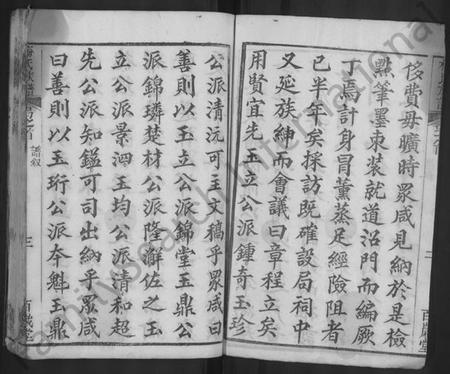 侈費毋曠時眾咸見納於是檢
㸃筆墨束装就道沿門而編厥
丁焉計身冒薰蒸足經險阻者
已半年矣採訪既確設局祠中
又延族紳而會議曰章程立矣
用賢宜先玉立公派鍾奇玉珍
公派清沅可主文稿乎眾咸曰
善則以玉立公派錦堂玉鼎公
派錦璘楚材公派隆澥佐之玉
立公派景泗玉均公派清和超
先公派知鎰可司出納乎眾咸
曰善則以玉珩公派本魁玉鼎
譜叙
三
百歲堂
二
百歲堂